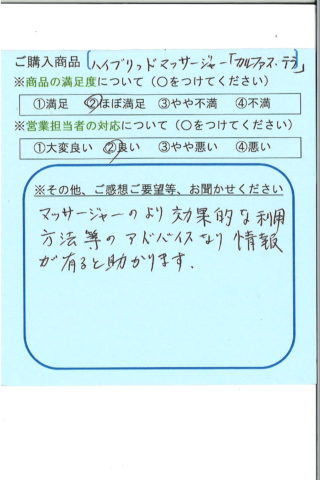 ご購入商品〔ハイブリッドマッサージャー「カルファス・テラ」〕
※商品の満足度について（○をつけてください）
①満足 ②ほぼ満足 ③やや不満 ④不満
※営業担当者の対応について（○をつけてください）
①大変良い ②良い ③やや悪い ④悪い
※その他、ご感想ご要望等、お聞かせください
マッサージャーのより効果的な利用
方法等のアドバイスなり情報
が有ると助かります.